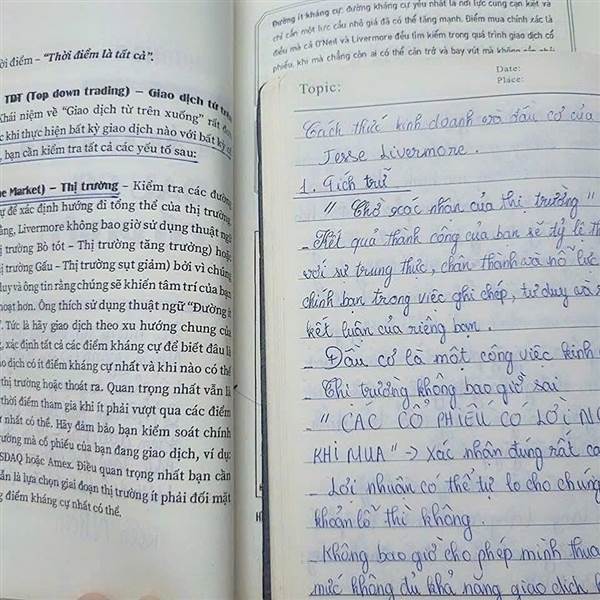 điểm – "Thời điểm là tất cả".
TDT (Top down trading) – Giao dịch từ trên
Khái niệm về "Giao dịch từ trên xuống" rất
khi thực hiện bất kỳ giao dịch nào với bất kỳ
bạn cần kiểm tra tất cả các yếu tố sau:
Market) – Thị trường – Kiểm tra các đường
để xác định hướng đi tổng thể của thị trường.
Livermore không bao giờ sử dụng thuật ngữ
trường Bò tót – Thị trường tăng trưởng) hoặc
trường Gấu – Thị trường sụt giảm) bởi vì chúng
duy và ông tin rằng chúng sẽ khiến tâm trí của bạn
hoạt hơn. Ông thích sử dụng thuật ngữ "Đường ít
Tức là hãy giao dịch theo xu hướng chung của
xác định tất cả các điểm kháng cự để biết đâu là
dịch có ít điểm kháng cự nhất và khi nào có thể
thị trường hoặc thoát ra. Quan trọng nhất vẫn là
thời điểm tham gia khi ít phải vượt qua các điểm
nhất có thể. Hãy đảm bảo bạn kiểm soát chính
trường mà cổ phiếu của bạn đang giao dịch, ví dụ:
SDAQ hoặc Amex. Điều quan trọng nhất bạn cần
vẫn là lựa chọn giai đoạn thị trường ít phải đối mặt
điểm kháng cự nhất có thể.
Đường ít kháng cự: đường kháng cự yếu nhất là nơi lực cung cạn kiệt và
chỉ cần một lực cầu nhỏ giá đã có thể tăng mạnh. Điểm mua chính xác là
điều mà cả O'Neil và Livermore đều tìm kiếm trong quá trình giao dịch cổ
phiếu, khi mà chẳng còn ai có thể cản trở và bay vút mà không
Topic:
Date:
Place:
Cách thức kinh doanh và đầu cơ của
Jesse Livermore.
1. Tích trữ
" Chờ xác nhận của thị trường "
- Kết quả thành công của bạn sẽ tỷ lệ
với sự trung thực, chân thành và nỗ lực
chính bạn trong việc ghi chép, tư duy và
kết luận của riêng bạn.
- Đầu cơ là một công việc kinh
- Thị trường không bao giờ sai
- " CÁC CỔ PHIẾU CÓ LỜI
KHI MUA " -> Xác nhận đúng rất
- Lợi nhuận có thể tự lo cho chúng
khoản lỗ thì không.
- Không bao giờ cho phép mình thua
mức không đủ khả năng giao dịch